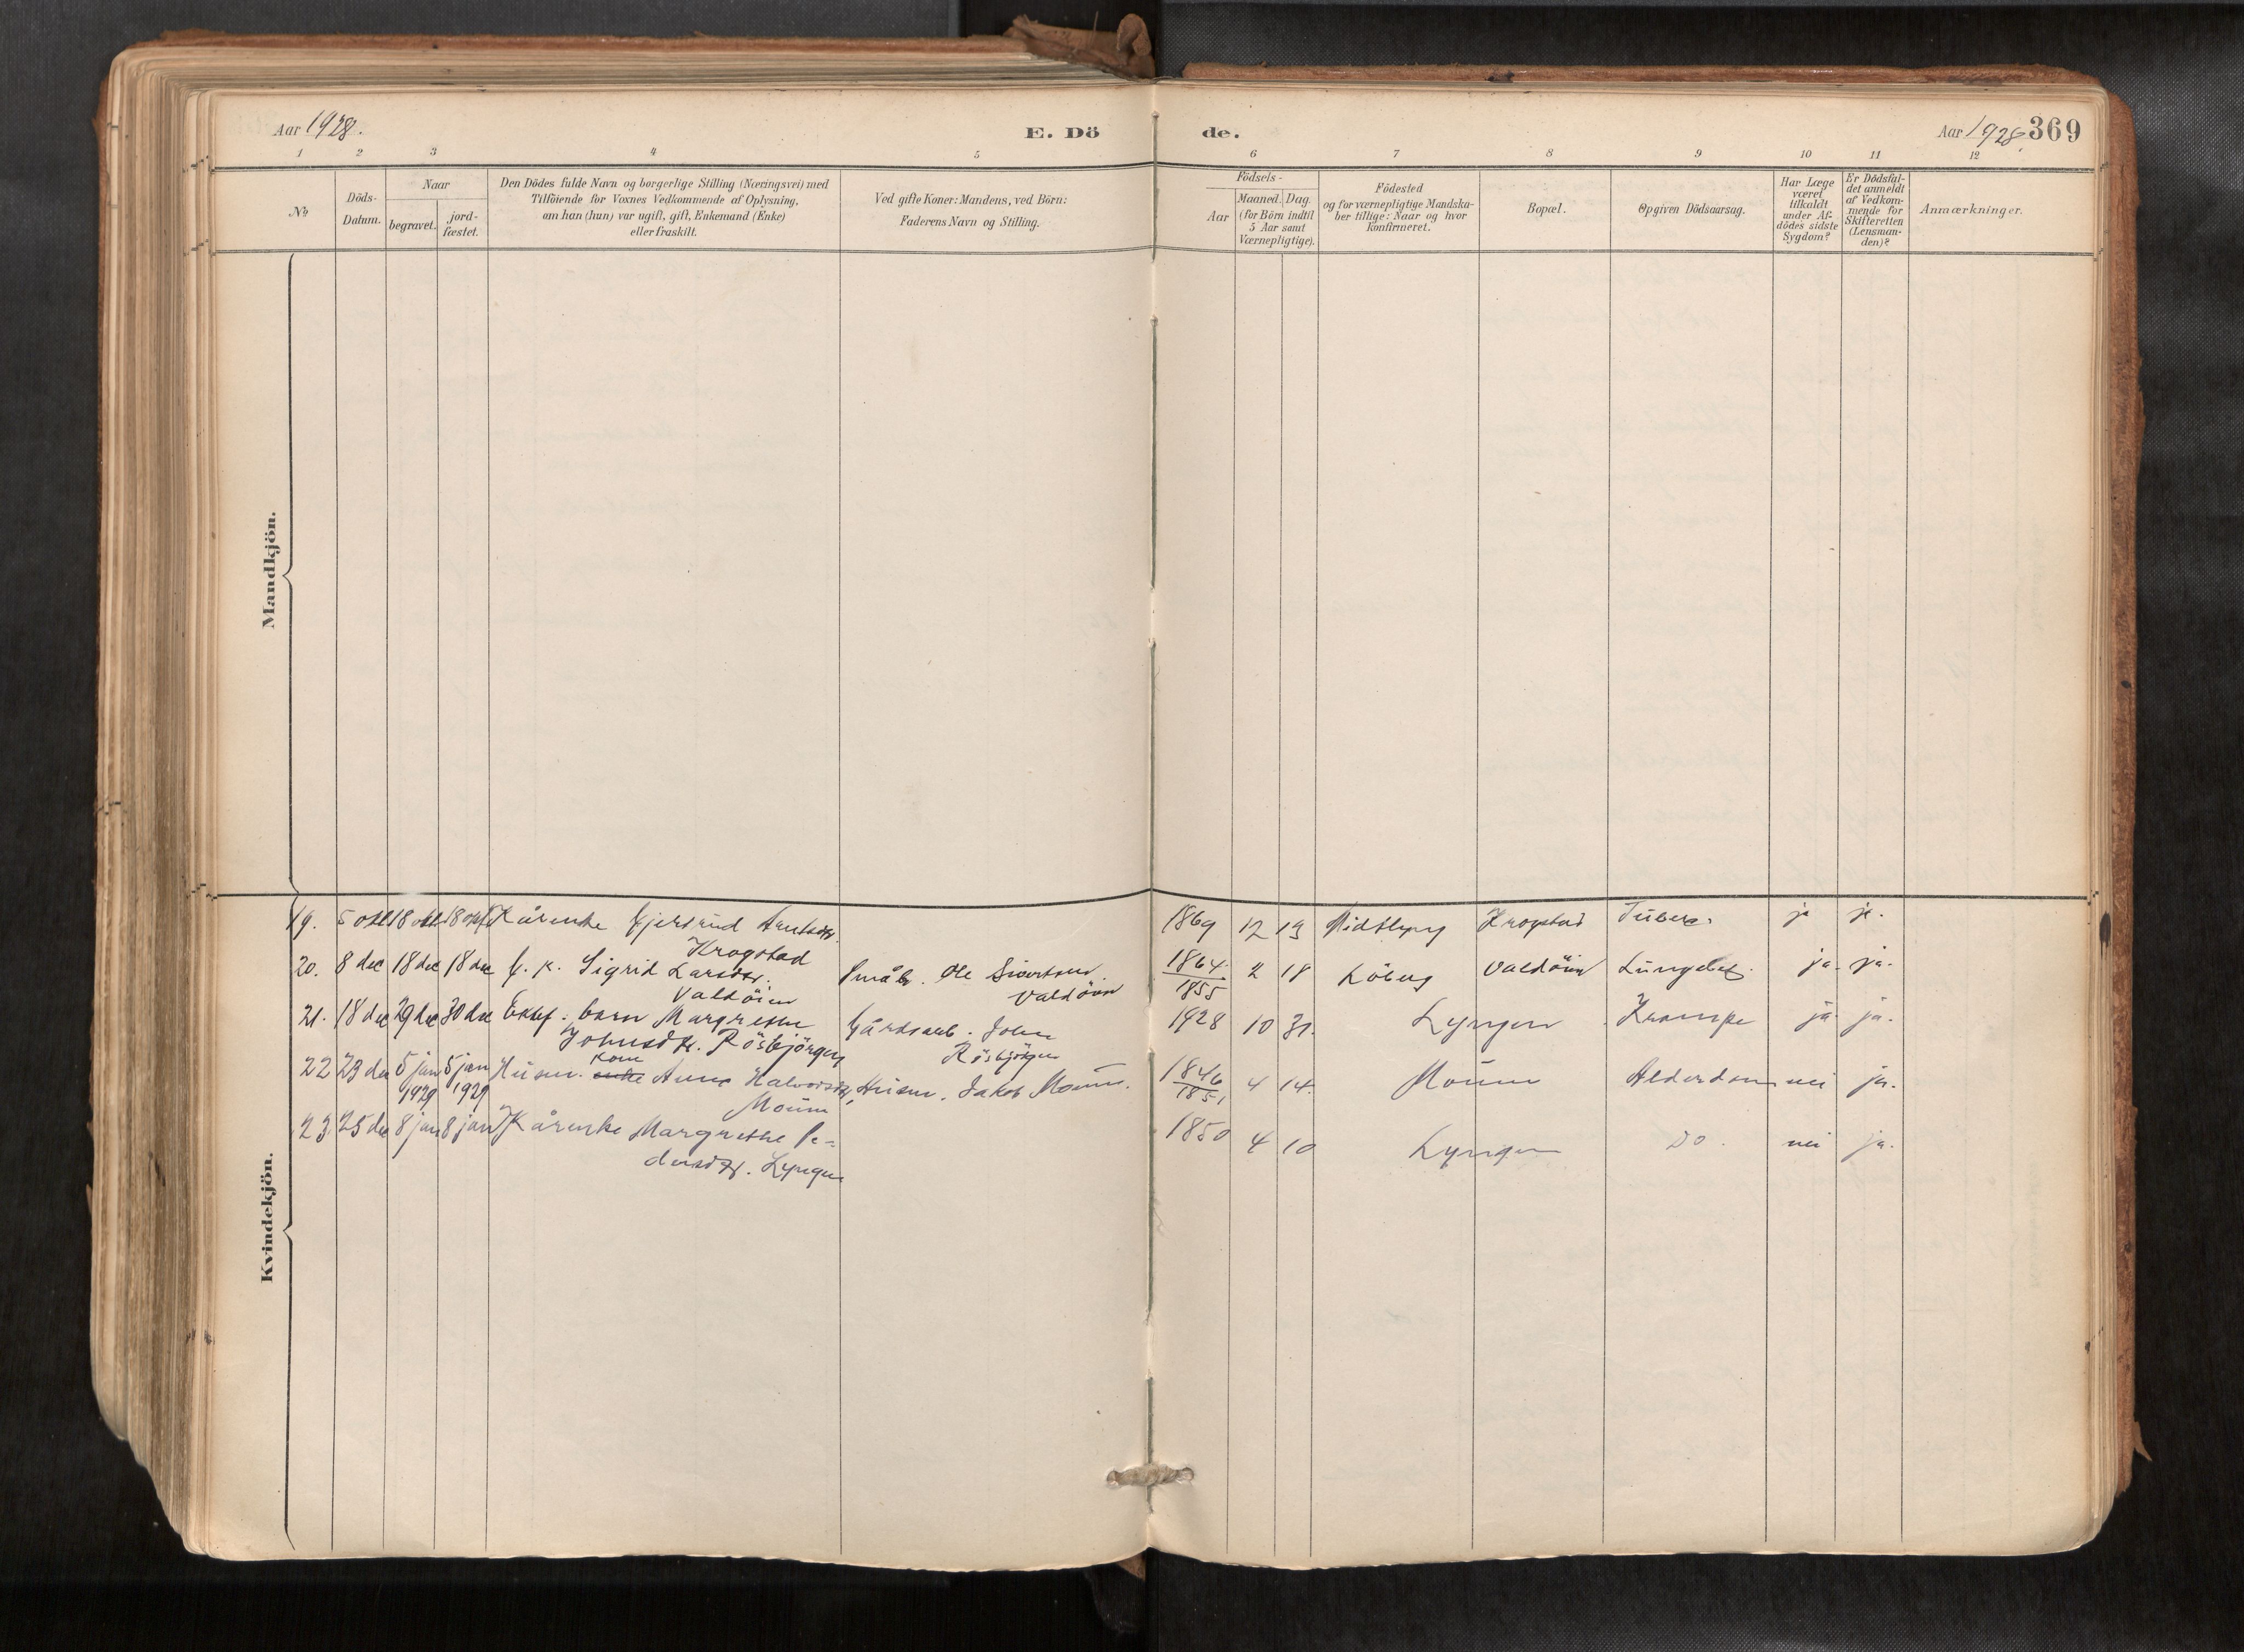 Aar 1928.
E. Dö de.
Aar 1928. 369
1 2 3 4 5 6 7 8 9 10 11 12
No
Döds-
Datum.
Naar
begravet.
jord-
fæstet.
Den Dödes fulde Navn og borgerlige Stilling (Næringsvei) med
Tilföiende for Voxnes Vedkommende af Oplysning,
om han (hun) var ugift, gift, Enkemand (Enke)
eller fraskilt.
Ved gifte Koner: Mandens, ved Börn:
Faderens Navn og Stilling.
Födsels-
Aar
Maaned. Dag.
(for Börn indtil
5 Aar samt
Værnepligtige).
Födested
og for værnepligtige Mandska-
ber tillige: Naar og hvor
konfirmeret.
Bopæl.
Opgiven Dödsaarsag.
Har Læge
været
tilkaldt
under Af-
dödes sidste
Sygdom?
Er Dödsfal-
det anmeldt
af Vedkom-
mende for
Skifteretten
(Lensman-
den)?
Anmærkninger.
Mandkjön.
Kvindekjön.
19. 5 okt 18 okt 18 okt Kårenke Gjertrud Arntsdtr. 1869 12 13 Krogstad Tuberc. ja ja.
Krogstad
20. 8 dec 18 dec 18 dec G. k. Sigrid Larsdtr. Småbr. Ole Sivertsen 1864 2 18 Löberg Valdöien ja. ja.
Valdöien Valdöien 1855
21. 18 dec 29 dec 30 dec barn Margrethe Gårdarb. John 1928 10 31. Lyngen Krampe ja ja.
Johnsdtr. Rösbjörgen Rösbjörgen
22 23 dec 5 jan 5 jan Husm. kone enke Anne Halvorsdtr, Husm. Jakob Moum. 1846 4 14. Moum Alderdom nei ja.
1929 1929 Moum 1851
23. 25 dec 8 jan 8 jan Kårenke Margrethe Pe- 1850 4 10 Lyngen Do. nei ja.
dersdtr. Lyngen